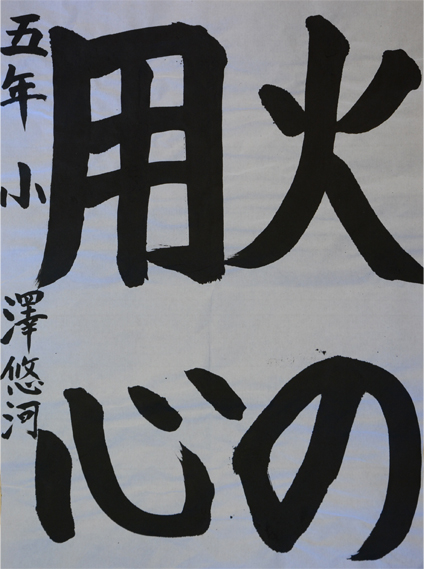 火の
用心
五年 小澤悠河